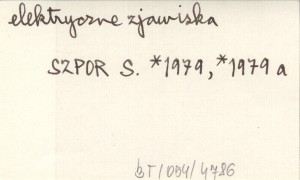 elektryczne zjawiska
SZPOR S. *1979, *1979 a
bT/004/4786